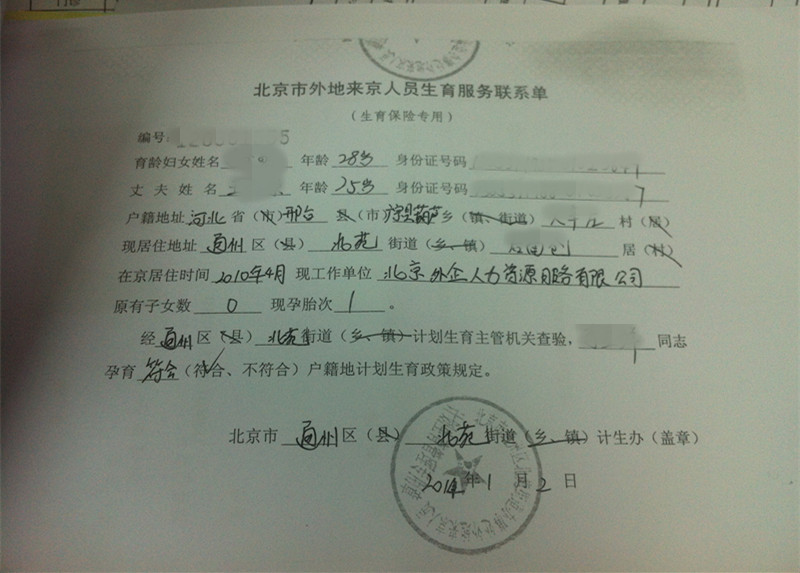 门诊
北京市外地来京人员生育服务联系单
（生育保险专用）
编号
育龄妇女姓名 年龄 28岁 身份证号码
丈夫姓名 年龄 25岁 身份证号码 7
户籍地址 河北 省（市）邢台 县（市 乡（镇、街道） 村（居）
现居住地址 通州 区（县） 北苑 街道（乡、镇） 居（村）
在京居住时间 2010年4月 现工作单位 北京外企人力资源服务有限公司
原有子女数 0 现孕胎次 1 。
经 通州 区（县） 北苑 街道（乡、镇）计划生育主管机关查验， 同志
孕育 符合（符合、不符合）户籍地计划生育政策规定。
北京市 通州 区（县） 北苑 街道（乡、镇）计生办（盖章）
2014年1月2日